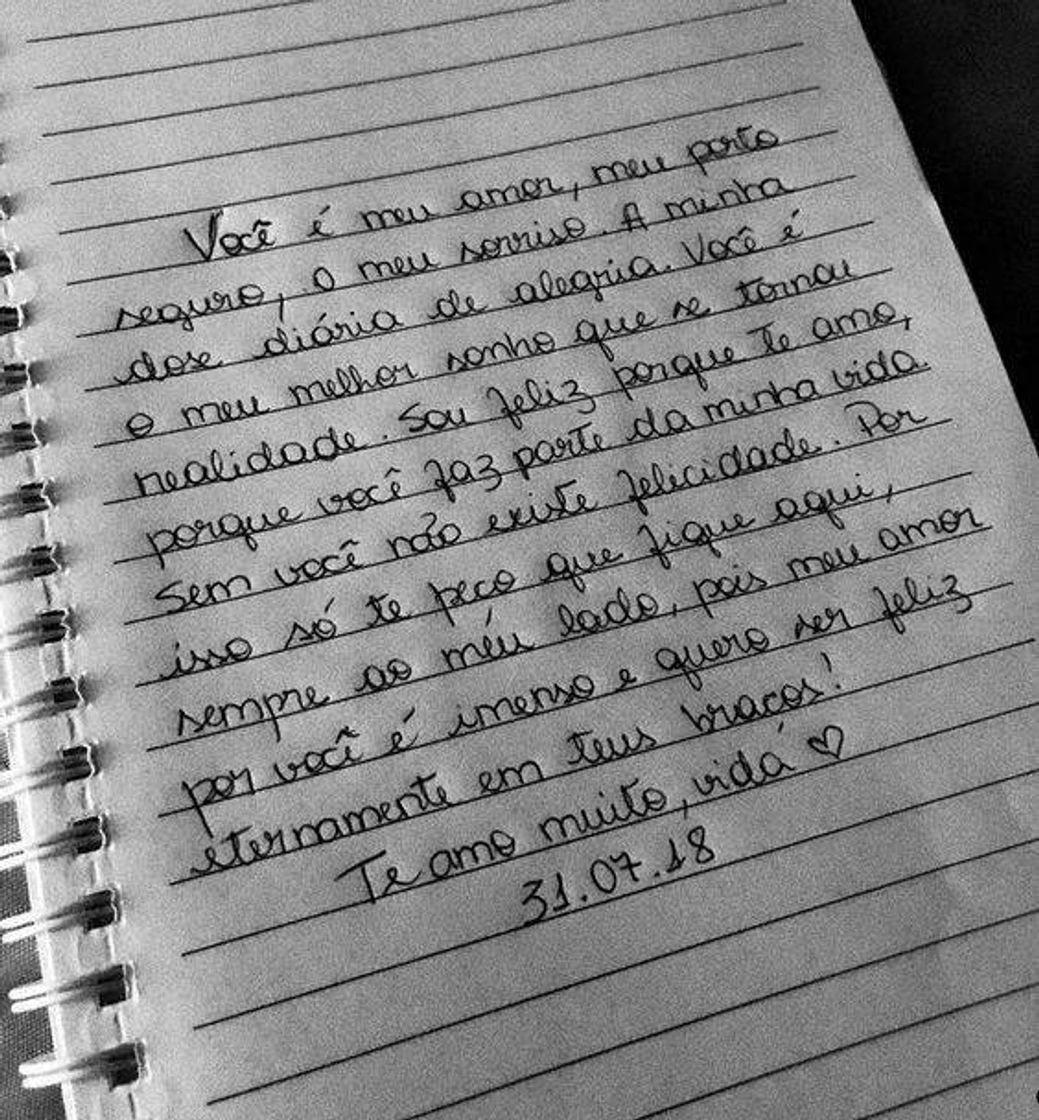 Você é meu amor, meu porto
seguro, o meu sorriso. A minha
dose diária de alegria. Você é
o meu melhor sonho que se tornou
realidade. Sou feliz porque te amo,
porque você faz parte da minha vida.
Sem você não existe felicidade. Por
isso só te peco que fique aqui,
sempre ao meu lado, pois meu amor
por você é imenso e quero ser feliz
eternamente em teus bracos!
Te amo muito, vida ♡
31.07.18